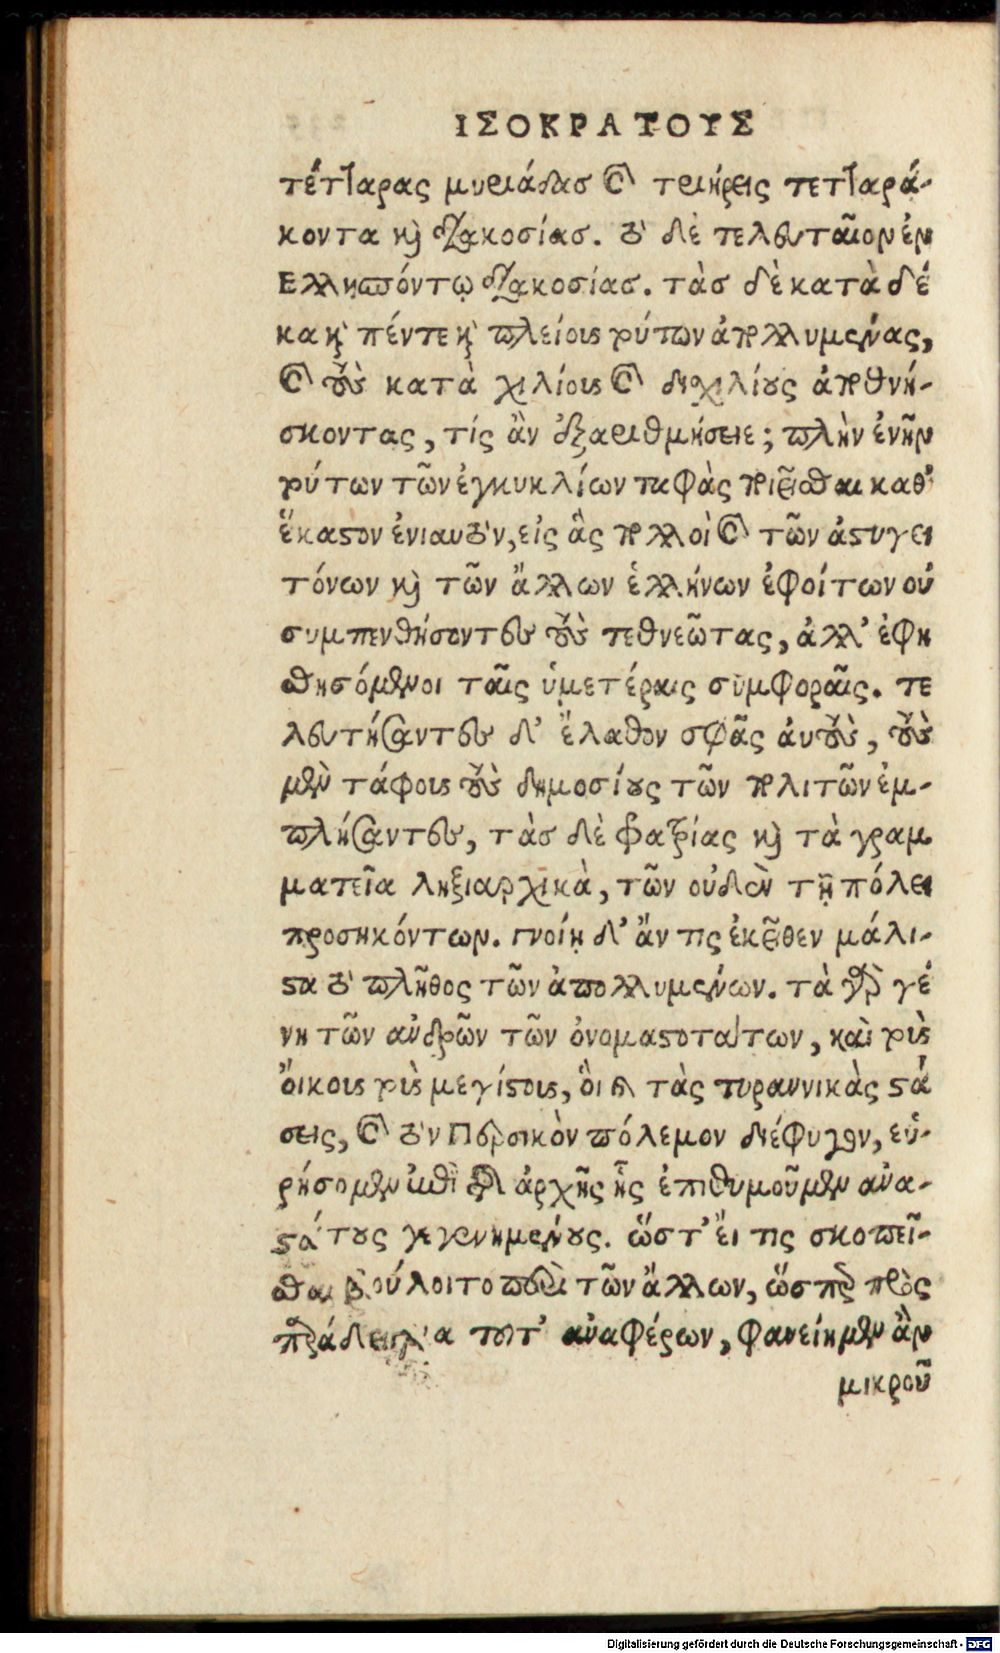 ΙΣΟΚΡΑΤΟΥΣ
τέτταρας μυριάδας καὶ τριήρεις τετταρά-
κοντα καὶ διακοσίας. τὸ δὲ τελευταῖον ἐν
Ελλησπόντῳ διακοσίας. τὰς δὲ κατὰ δέ
κα καὶ πέντε καὶ πλείους τούτων ἀπολλυμένας,
καὶ τοὺς κατὰ χιλίους καὶ δισχιλίους ἀποθνή-
σκοντας, τίς ἂν ἐξαριθμήσειε; πλὴν ἓν ἦν
τούτων τῶν ἐγκυκλίων ταφὰς ποιεῖσθαι καθ'
ἕκαστον ἐνιαυτὸν, εἰς ἃς πολλοὶ καὶ τῶν ἀστυγει
τόνων καὶ τῶν ἄλλων ἑλλήνων ἐφοίτων οὐ
συμπενθήσοντες τοὺς τεθνεῶτας, ἀλλ' ἐφη
σθησόμενοι ταῖς ὑμετέραις συμφοραῖς. τε
λευτήσαντες δ' ἔλαθον σφᾶς αὐτοὺς, τοὺς
μὲν τάφους τοὺς δημοσίους τῶν πολιτῶν ἐμ-
πλήσαντες, τὰς δὲ φατρίας καὶ τὰ γραμ
ματεῖα ληξιαρχικὰ, τῶν οὐδὲν τῇ πόλει
προσηκόντων. γνοίη δ' ἄν τις ἐκεῖθεν μάλι-
στα τὸ πλῆθος τῶν ἀπολλυμένων. τὰ γὰρ γέ
νη τῶν ἀνδρῶν τῶν ὀνομαστοτάτων, καὶ τοὺς
ὄικους τοὺς μεγίστους, ὃι καὶ τὰς τυραννικὰς στά
σεις, καὶ τὸν Περσικὸν πόλεμον διέφυγον, εὑ-
ρήσομεν ἐπὶ τῆς ἀρχῆς ἧς ἐπιθυμοῦμεν ἀνα-
στάτους γεγενημένους. ὥστ' ἔι τις σκοπεῖ-
σθαι βούλοιτο περὶ τῶν ἄλλων, ὥσπερ πρὸς
παράδειγμα τοῦτ' ἀναφέρων, φανείημεν ἂν
μικροῦ
Digitalisierung gefördert durch die Deutsche Forschungsgemeinschaft - DFG